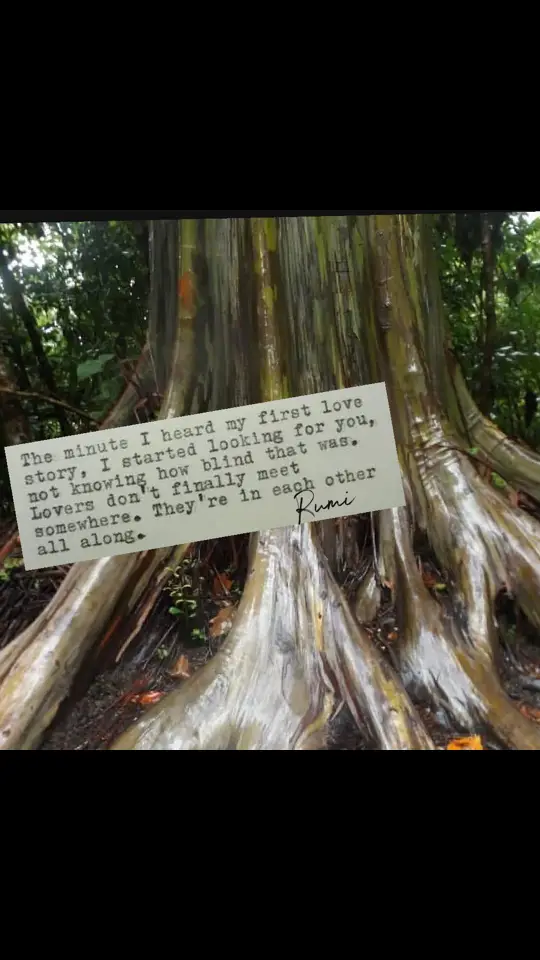 The minute I heard my first love
story, I started looking for you,
not knowing how blind that was.
Lovers don't finally meet
somewhere. They're in each other
all along.
Rumi